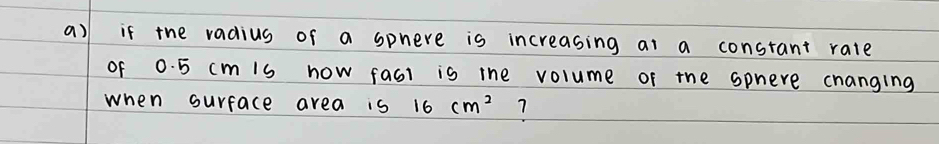 a) if the radius of a sphere is increasing at a constant rate
of 0.5 cm/s how fast is the volume of the sphere changing
when surface area is 16 cm² ?